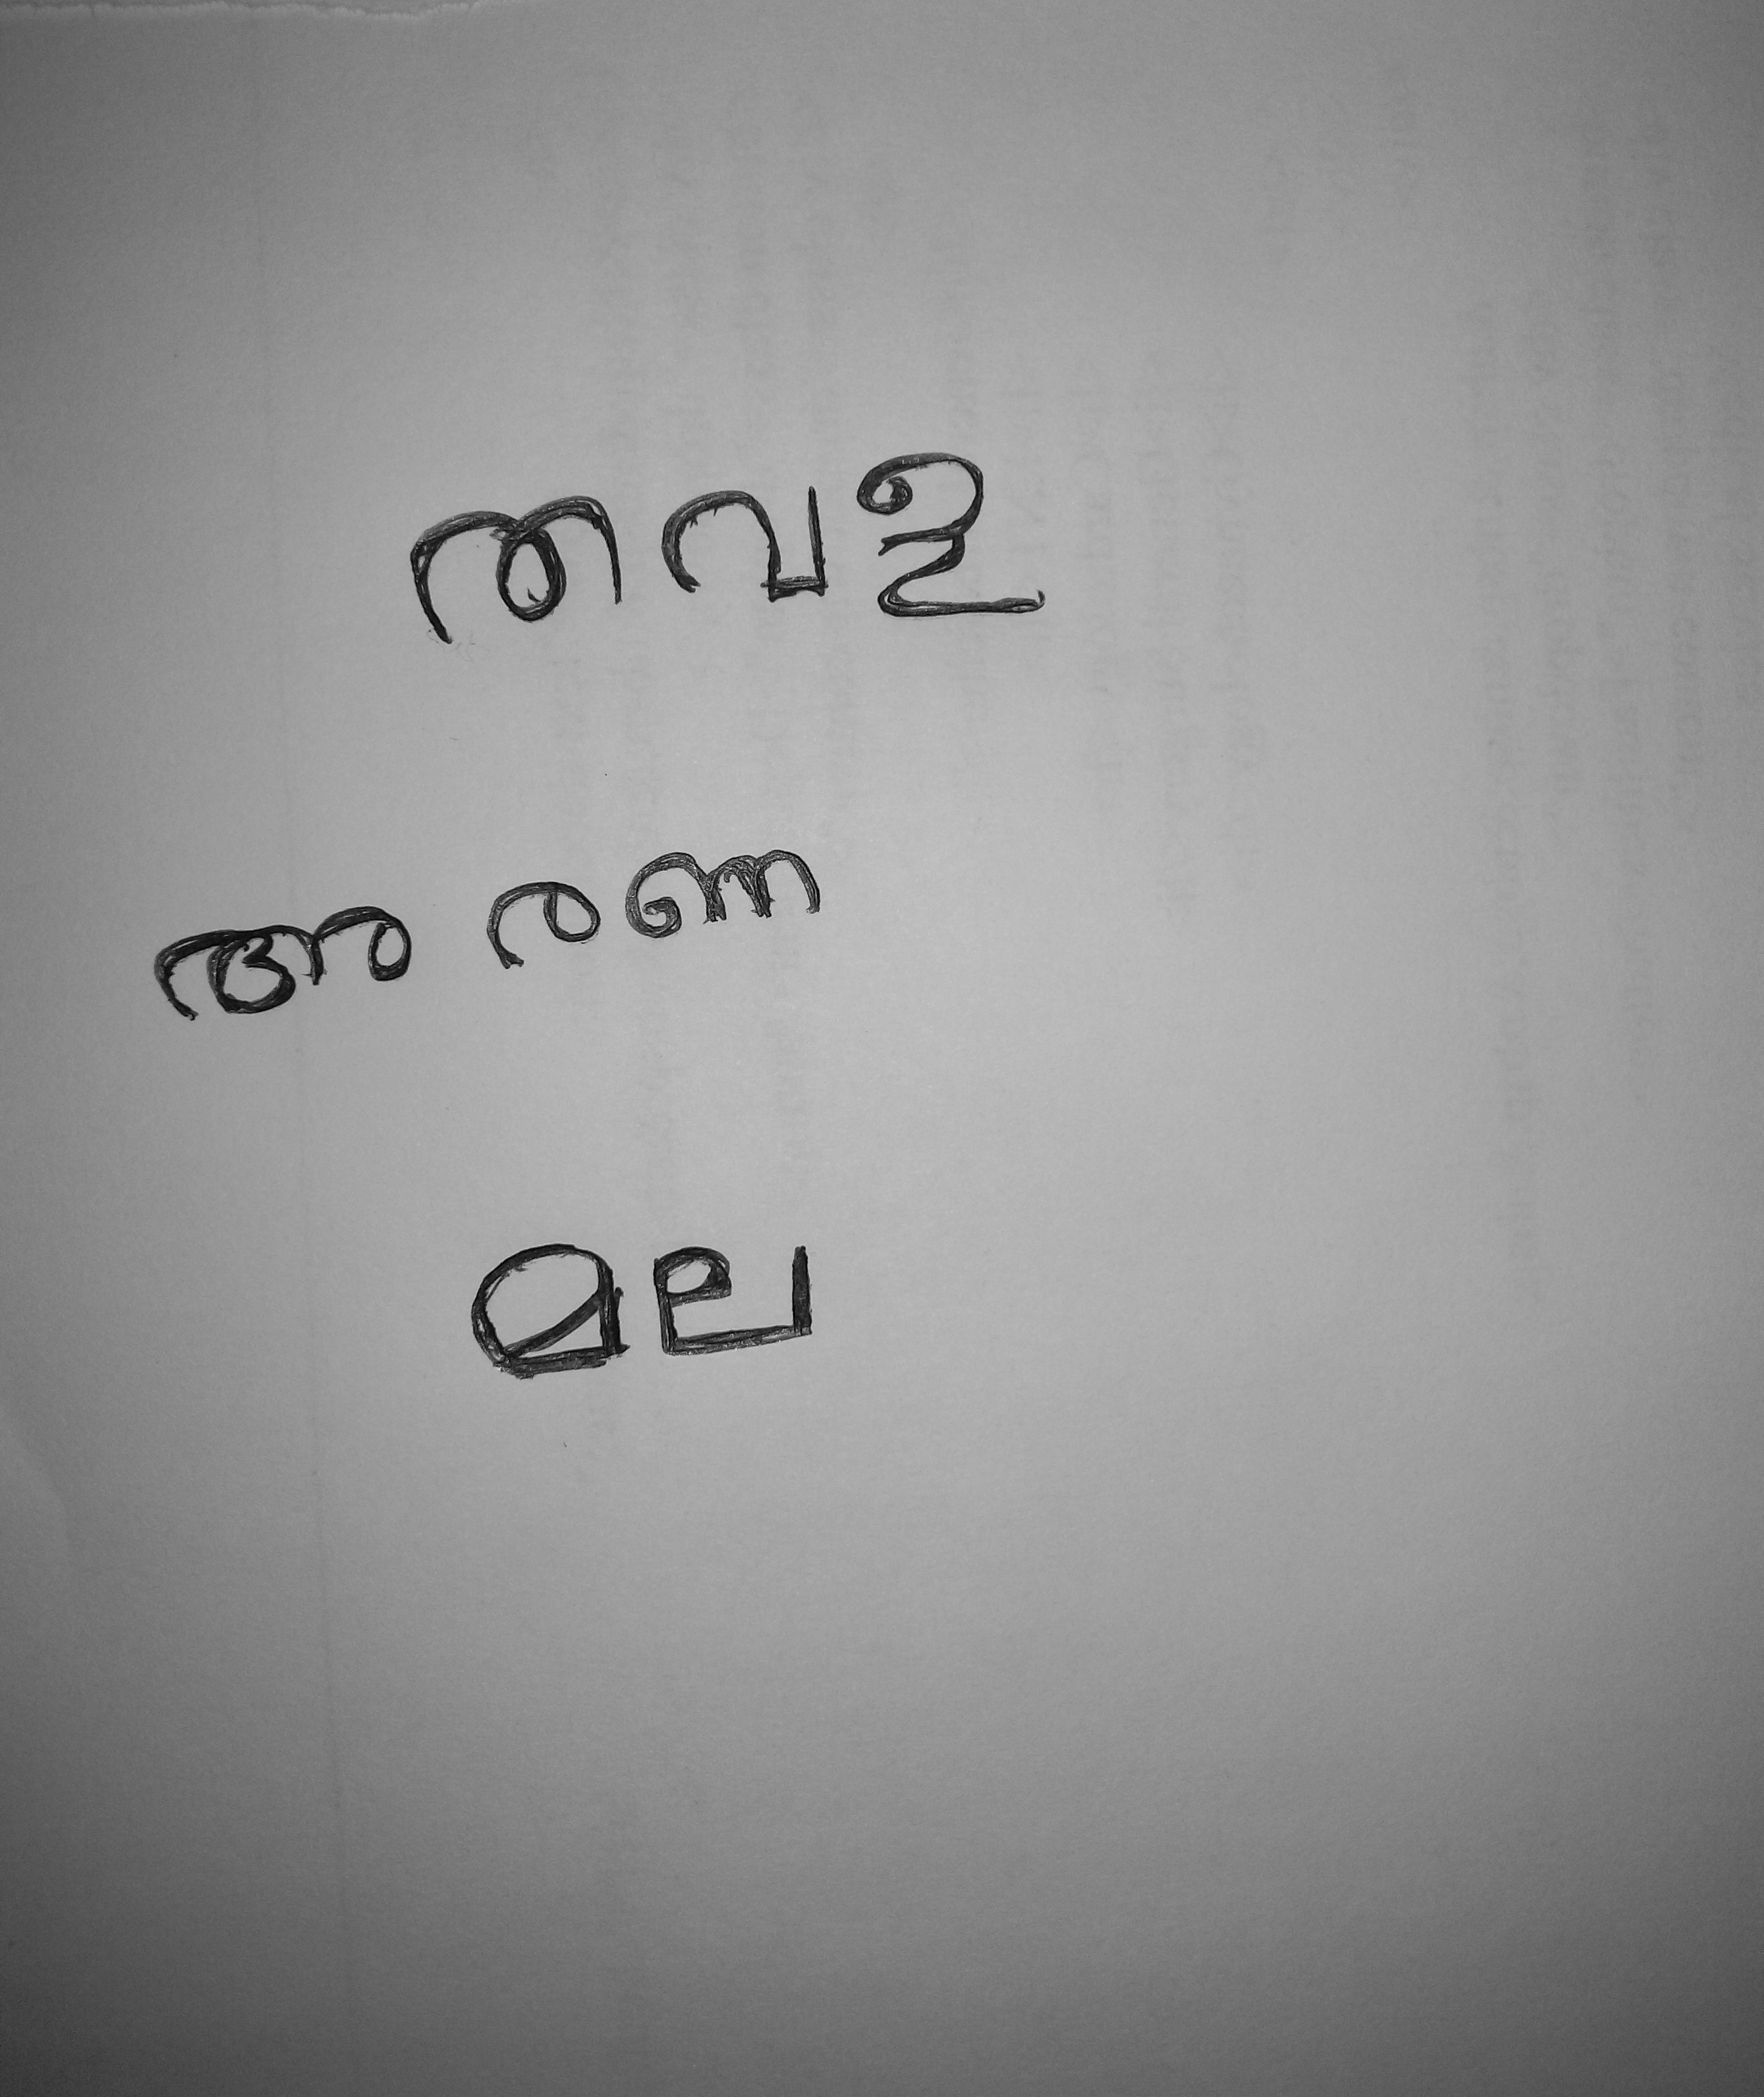 തവള
അരണ
മല